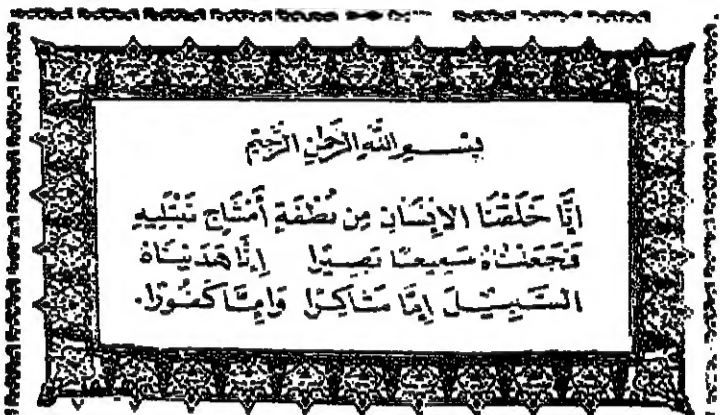 بسم الله الرحمن الرحيم
إنَّا خَلَقْنَا الإِنْسَانَ مِن نُطْفَةٍ أَمْشَاجٍ نَبْتَلِيهِ
فَجَعَلْنَاهُ سَمِيعًا بَصِيرًا إِنَّا هَدَيْنَاهُ
السَّبِيلَ إِمَّا شَاكِرًا وَإِمَّا كَفُورًا.